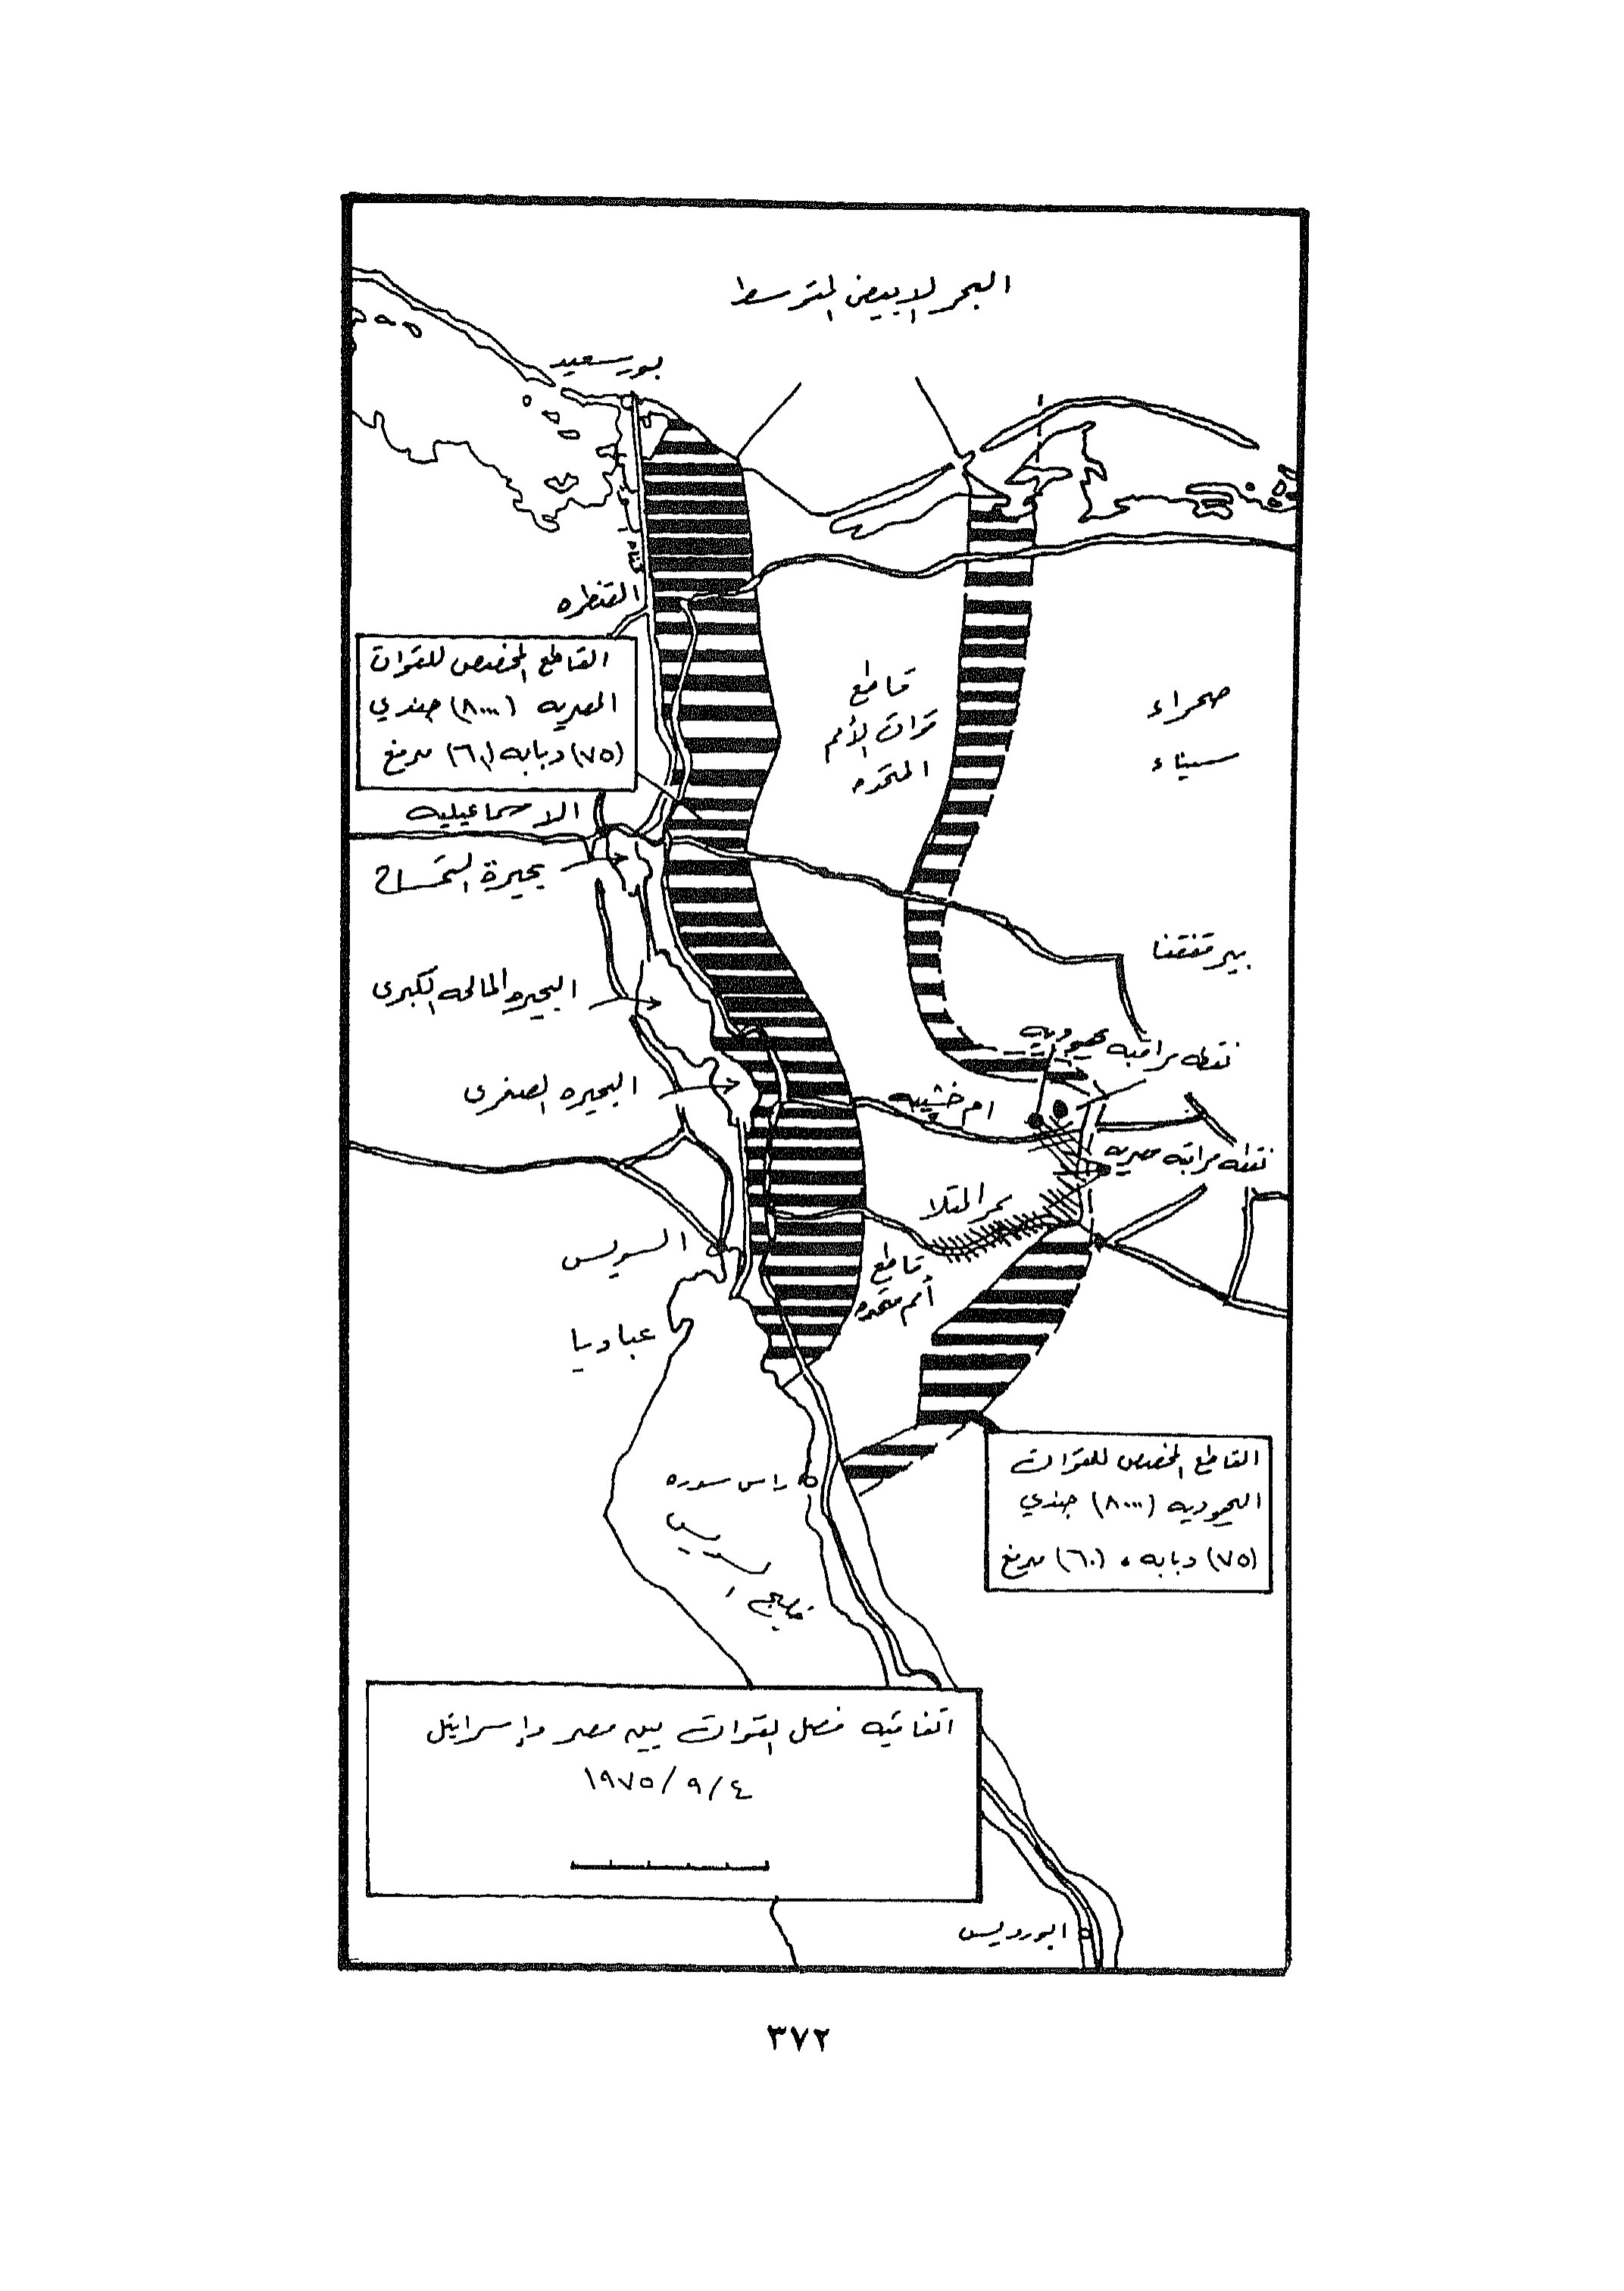 البحر الابيض المتوسط
بور سعيد
قناه
القنطره
القاطع المخصص للقوات
المصريه (٨٠٠٠) جندي
(٧٥) دبابه (٦٠) مدفع
قاطع
قوات الأمم
المتحده
صحراء
سيناء
الاسماعيليه
بحيرة التمساح
بير قفقفا
البحيره المالحه الكبرى
نقطه مراقبه يهوديه
البحيره الصغرى
ام خشيب
نقطه مراقبه مصريه
ممر المتلا
السويس
قاطع
أمم متحده
عباديا
القاطع المخصص للقوات
اليهوديه (٨٠٠٠) جندي
(٧٥) دبابه ، (٦٠) مدفع
راس سدره
خليج السويس
اتفاقيه فصل القوات بين مصر وإسرائيل
٤/٩/١٩٧٥
ابورديس
٣٧٢